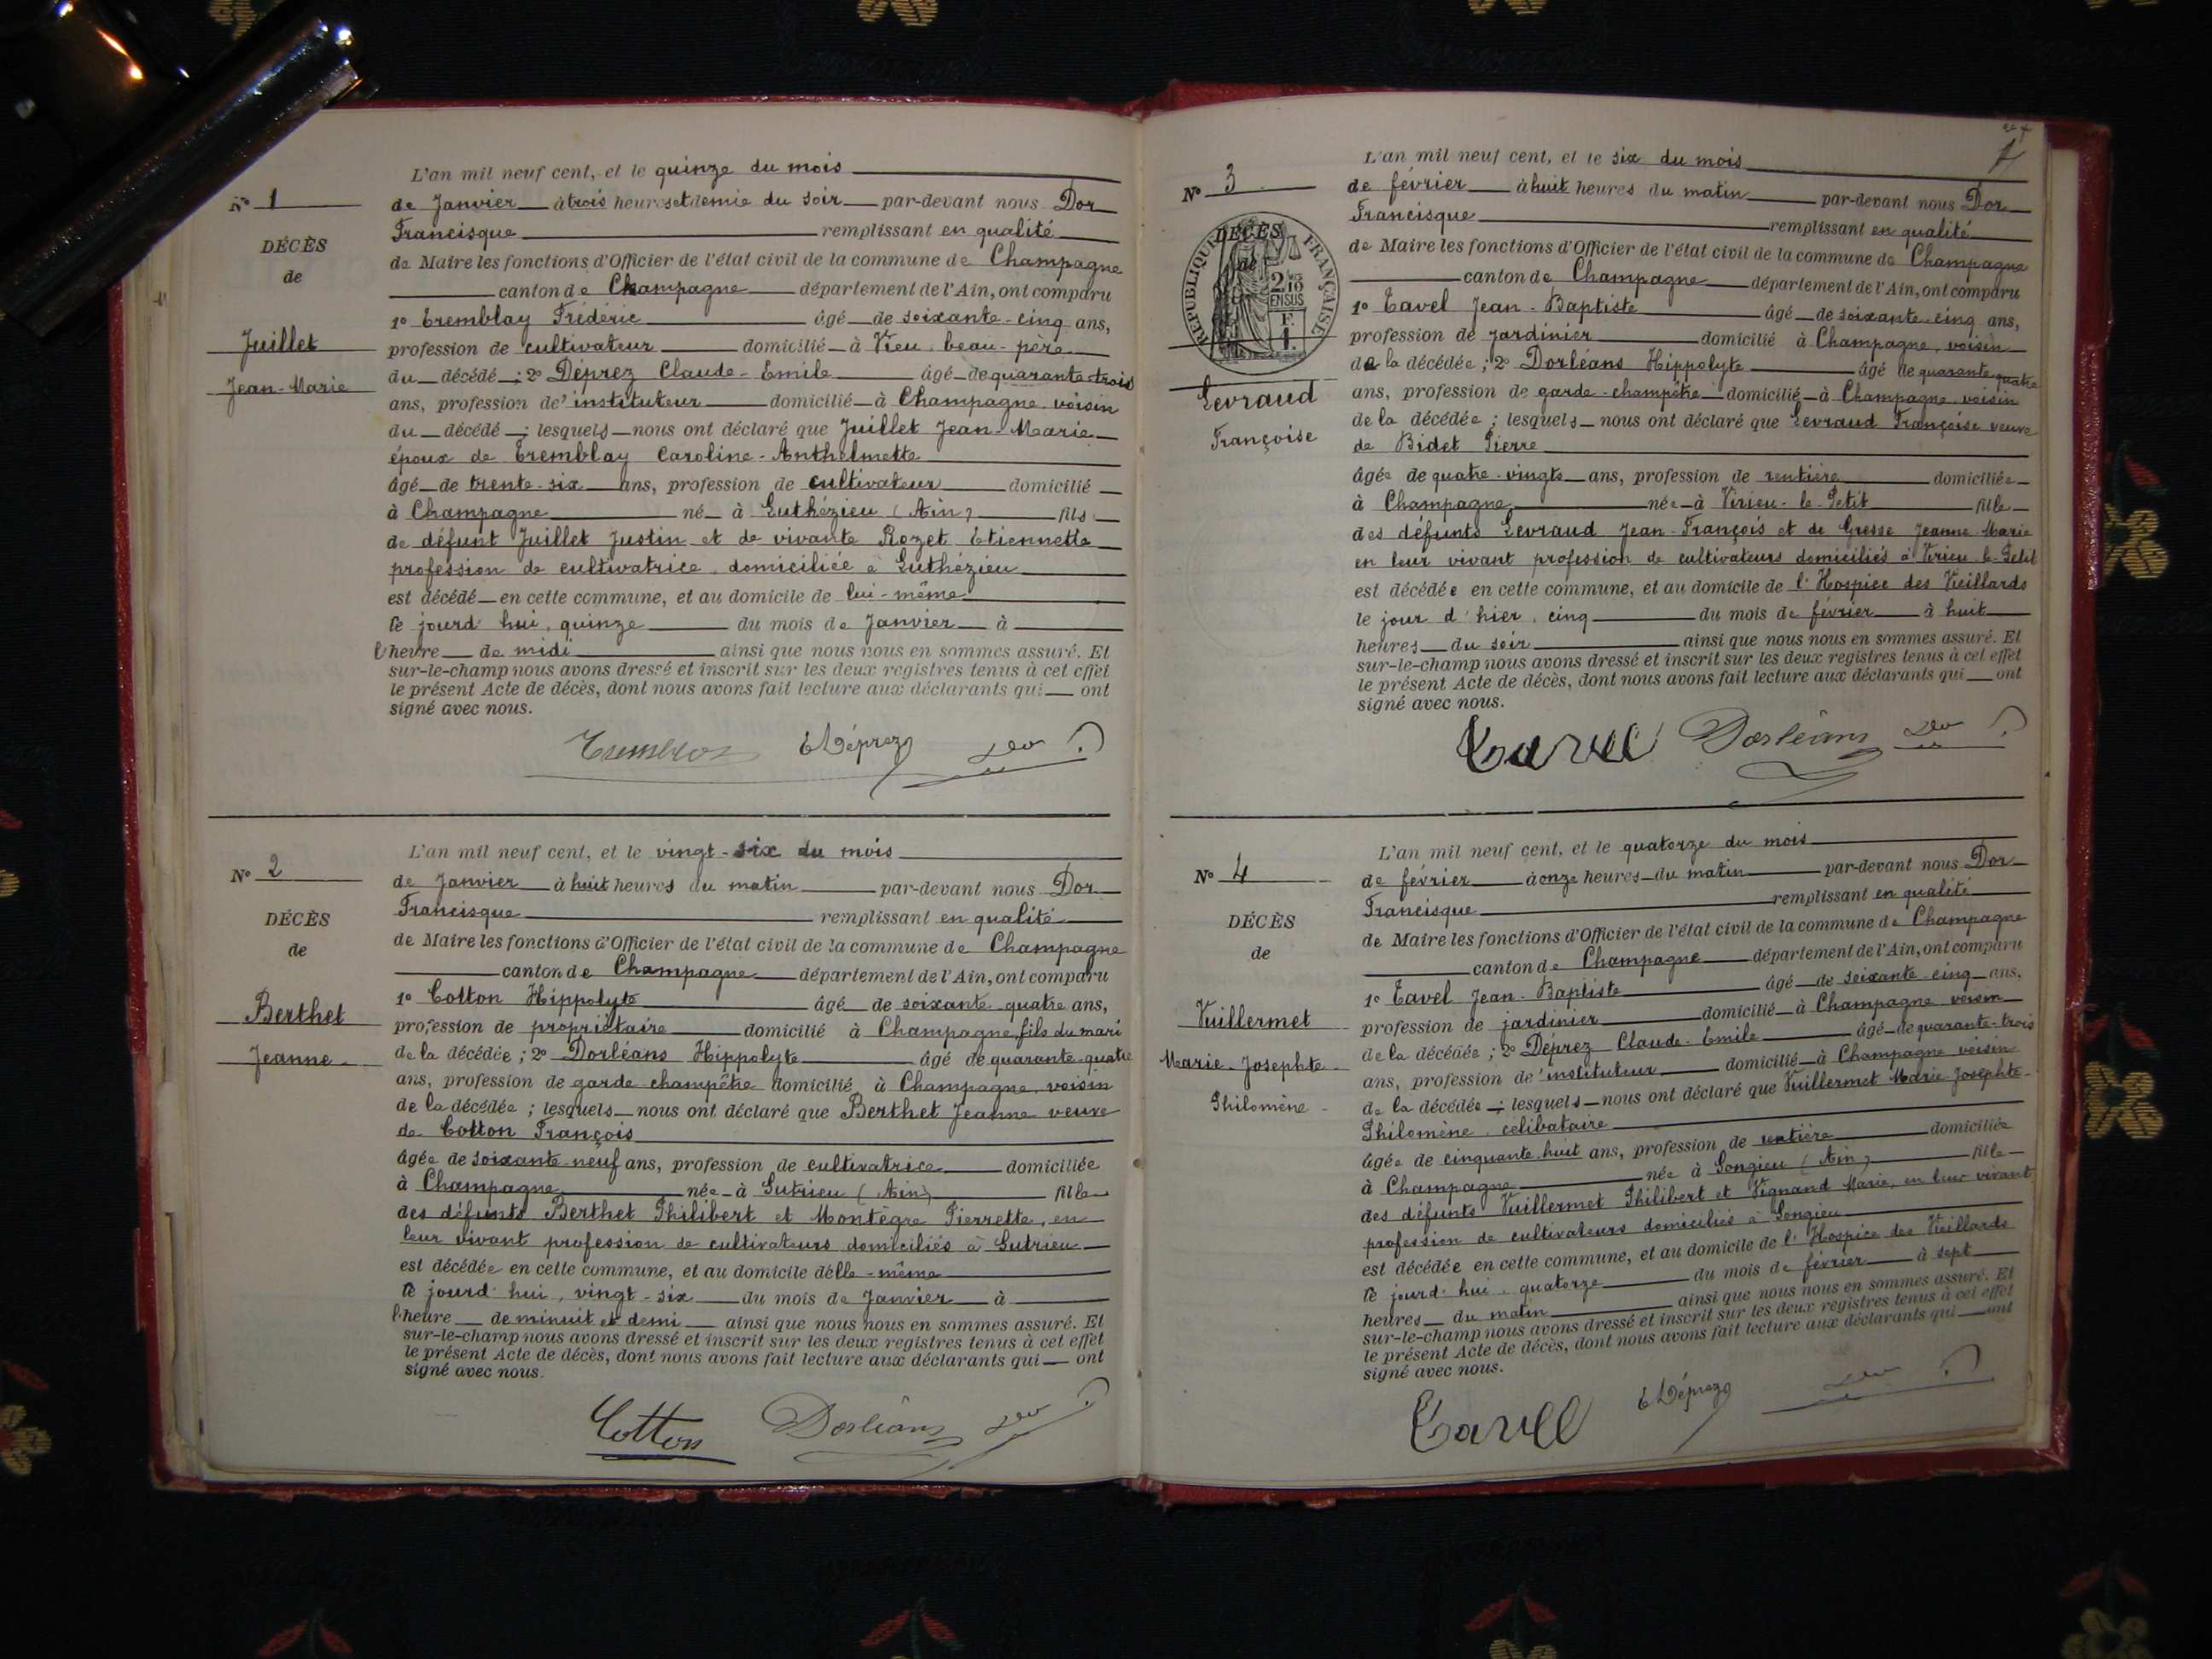 N° 1
DÉCÈS
de
Juillet
Jean-Marie
L'an mil neuf cent, et le quinze du mois
de Janvier à trois heures et demie du soir par-devant nous Dor
Francisque remplissant en qualité
de Maire les fonctions d'Officier de l'état civil de la commune de Champagne
canton de Champagne département de l'Ain, ont comparu
1° Tremblay Frédéric âgé de soixante-cinq ans,
profession de cultivateur domicilié à Vieu, beau-père
du décédé; 2° Déprez Claude-Emile âgé de quarante-trois
ans, profession de d'instituteur domicilié à Champagne, voisin
du décédé; lesquels nous ont déclaré que Juillet Jean-Marie
époux de Tremblay Caroline-Anthelmette
âgé de trente-six ans, profession de cultivateur domicilié
à Champagne né à Luthézieu (Ain) fils
de défunt Juillet Justin et de vivante Rozet Etiennette
profession de cultivatrice, domiciliée à Luthézieu
est décédé en cette commune, et au domicile de lui-même
le jourd'hui, quinze du mois de Janvier à
l'heure de midi ainsi que nous nous en sommes assuré. Et
sur-le-champ nous avons dressé et inscrit sur les deux registres tenus à cet effet
le présent Acte de décès, dont nous avons fait lecture aux déclarants qui ont
signé avec nous.
EDéprez
N° 2
DÉCÈS
de
Berthet
Jeanne
L'an mil neuf cent, et le vingt-six du mois
de Janvier à huit heures du matin par-devant nous Dor
Francisque remplissant en qualité
de Maire les fonctions d'Officier de l'état civil de la commune de Champagne
canton de Champagne département de l'Ain, ont comparu
1° Cotton Hippolyte âgé de soixante-quatre ans,
profession de propriétaire domicilié à Champagne, fils du mari
de la décédée; 2° Dorléans Hippolyte âgé de quarante-quatre
ans, profession de garde-champêtre domicilié à Champagne, voisin
de la décédée; lesquels nous ont déclaré que Berthet Jeanne veuve
de Cotton François
âgée de soixante-neuf ans, profession de cultivatrice domiciliée
à Champagne née à Sutrieu (Ain) fille
des défunts Berthet Philibert et Montègre Pierrette, en
leur vivant profession de cultivateurs domiciliés à Sutrieu
est décédée en cette commune, et au domicile d'elle-même
le jourd'hui, vingt-six du mois de Janvier à
l'heure de minuit et demi ainsi que nous nous en sommes assuré. Et
sur-le-champ nous avons dressé et inscrit sur les deux registres tenus à cet effet
le présent Acte de décès, dont nous avons fait lecture aux déclarants qui ont
signé avec nous.
Cotton Dorléans Dor
N° 3
RÉPUBLIQUE FRANÇAISE
DÉCÈS
de
2/10
EN SUS
F.
1.
Levraud
Françoise
L'an mil neuf cent, et le six du mois
de février à huit heures du matin par-devant nous Dor
Francisque remplissant en qualité
de Maire les fonctions d'Officier de l'état civil de la commune de Champagne
canton de Champagne département de l'Ain, ont comparu
1° Tavel Jean-Baptiste âgé de soixante-cinq ans,
profession de jardinier domicilié à Champagne, voisin
de la décédée; 2° Dorléans Hippolyte âgé de quarante quatre
ans, profession de garde-champêtre domicilié à Champagne, voisin
de la décédée; lesquels nous ont déclaré que Levraud Françoise veuve
de Bidet Pierre
âgée de quatre-vingts ans, profession de rentière domiciliée
à Champagne née à Virieu-le-Petit fille
des défunts Levraud Jean-François et de Gresse Jeanne-Marie
en leur vivant profession de cultivateurs domiciliés à Virieu-le-Petit
est décédée en cette commune, et au domicile de l'Hospice des Vieillards
le jour d'hier, cinq du mois de février à huit
heures du soir ainsi que nous nous en sommes assuré. Et
sur-le-champ nous avons dressé et inscrit sur les deux registres tenus à cet effet
le présent Acte de décès, dont nous avons fait lecture aux déclarants qui ont
signé avec nous.
Tavel Dorléans Dor
N° 4
DÉCÈS
de
Vuillermet
Marie-Josephte
Philomène
L'an mil neuf cent, et le quatorze du mois
de février à onze heures du matin par-devant nous Dor
Francisque remplissant en qualité
de Maire les fonctions d'Officier de l'état civil de la commune de Champagne
canton de Champagne département de l'Ain, ont comparu
1° Tavel Jean-Baptiste âgé de soixante-cinq ans,
profession de jardinier domicilié à Champagne voisin
de la décédée; 2° Déprez Claude-Emile âgé de quarante-trois
ans, profession de d'instituteur domicilié à Champagne voisin
de la décédée; lesquels nous ont déclaré que Vuillermet Marie-Josephte
Philomène, célibataire
âgée de cinquante-huit ans, profession de rentière domiciliée
à Champagne née à Songieu (Ain) fille
des défunts Vuillermet Philibert et Vignand Marie, en leur vivant
profession de cultivateurs domiciliés à Songieu
est décédée en cette commune, et au domicile de l'Hospice des Vieillards
le jourd'hui, quatorze du mois de février à sept
heures du matin ainsi que nous nous en sommes assuré. Et
sur-le-champ nous avons dressé et inscrit sur les deux registres tenus à cet effet
le présent Acte de décès, dont nous avons fait lecture aux déclarants qui ont
signé avec nous.
Tavel EDéprez Dor